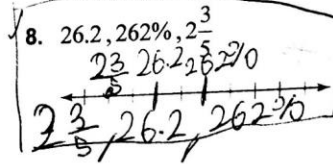 8. 26.2, 262%, 2 3/5
2 3/5 26.2 262%
2 3/5, 26.2, 262%